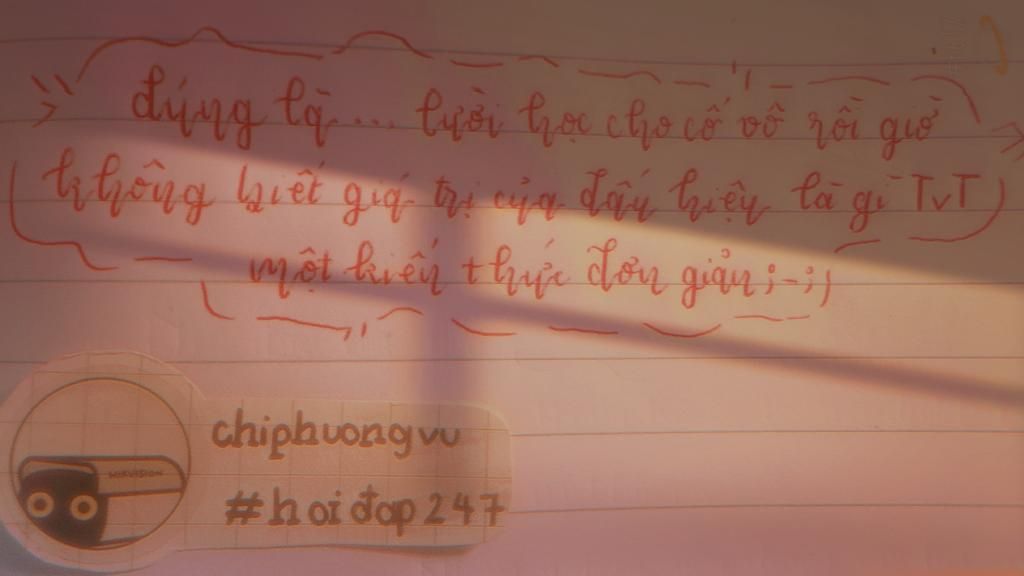 đúng là.... lười học cho cố vô rồi giờ
không biết giá trị của dấu hiệu là gì TvT
một kiến thức đơn giản ;-;
HIKVISION
chiphuongvu
#hoiđap247